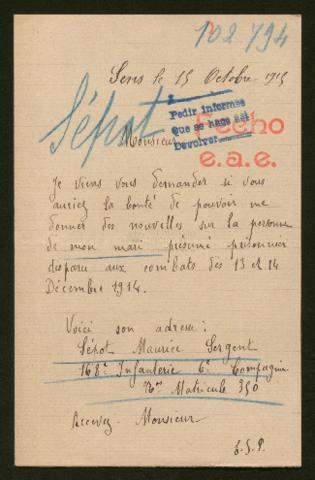 102794
Sens le 15 Octobre 1915
Sépot
Pedir informes
Que se haga así
Devolver
Fecho
e.a.e.
Monsieur
Je viens vous demander si vous
auriez la bonté de pouvoir me
donner des nouvelles sur la personne
de mon mari présumé prisonnier
disparu aux combats des 13 et 14
Décembre 1914.
Voici son adresse :
Sépot Maurice Sergent
168e Infanterie 6e Compagnie
Nro Matricule 350
Recevez Monsieur